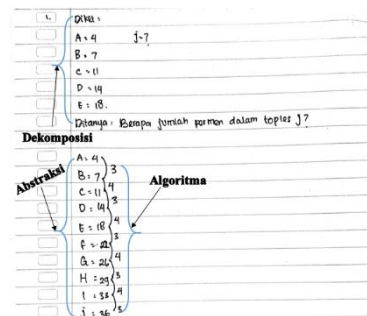 1. Diket :
A = 4 j = ?
B = 7
C = 11
D = 14
E = 18.
Ditanya : Berapa jumlah permen dalam toples J ?
Dekomposisi
Abstraksi
Algoritma
A = 4
3
B = 7
4
C = 11
3
D = 14
4
E = 18
3
F = 21
4
G = 26
3
H = 29
4
I = 33
3
j = 36